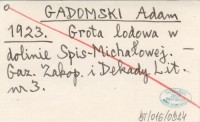 GADOMSKI Adam
1923. Grota lodowa w
dolinie Spis-Michałowej. –
Gaz. Zakop. i Dekady Lit.
nr 3.